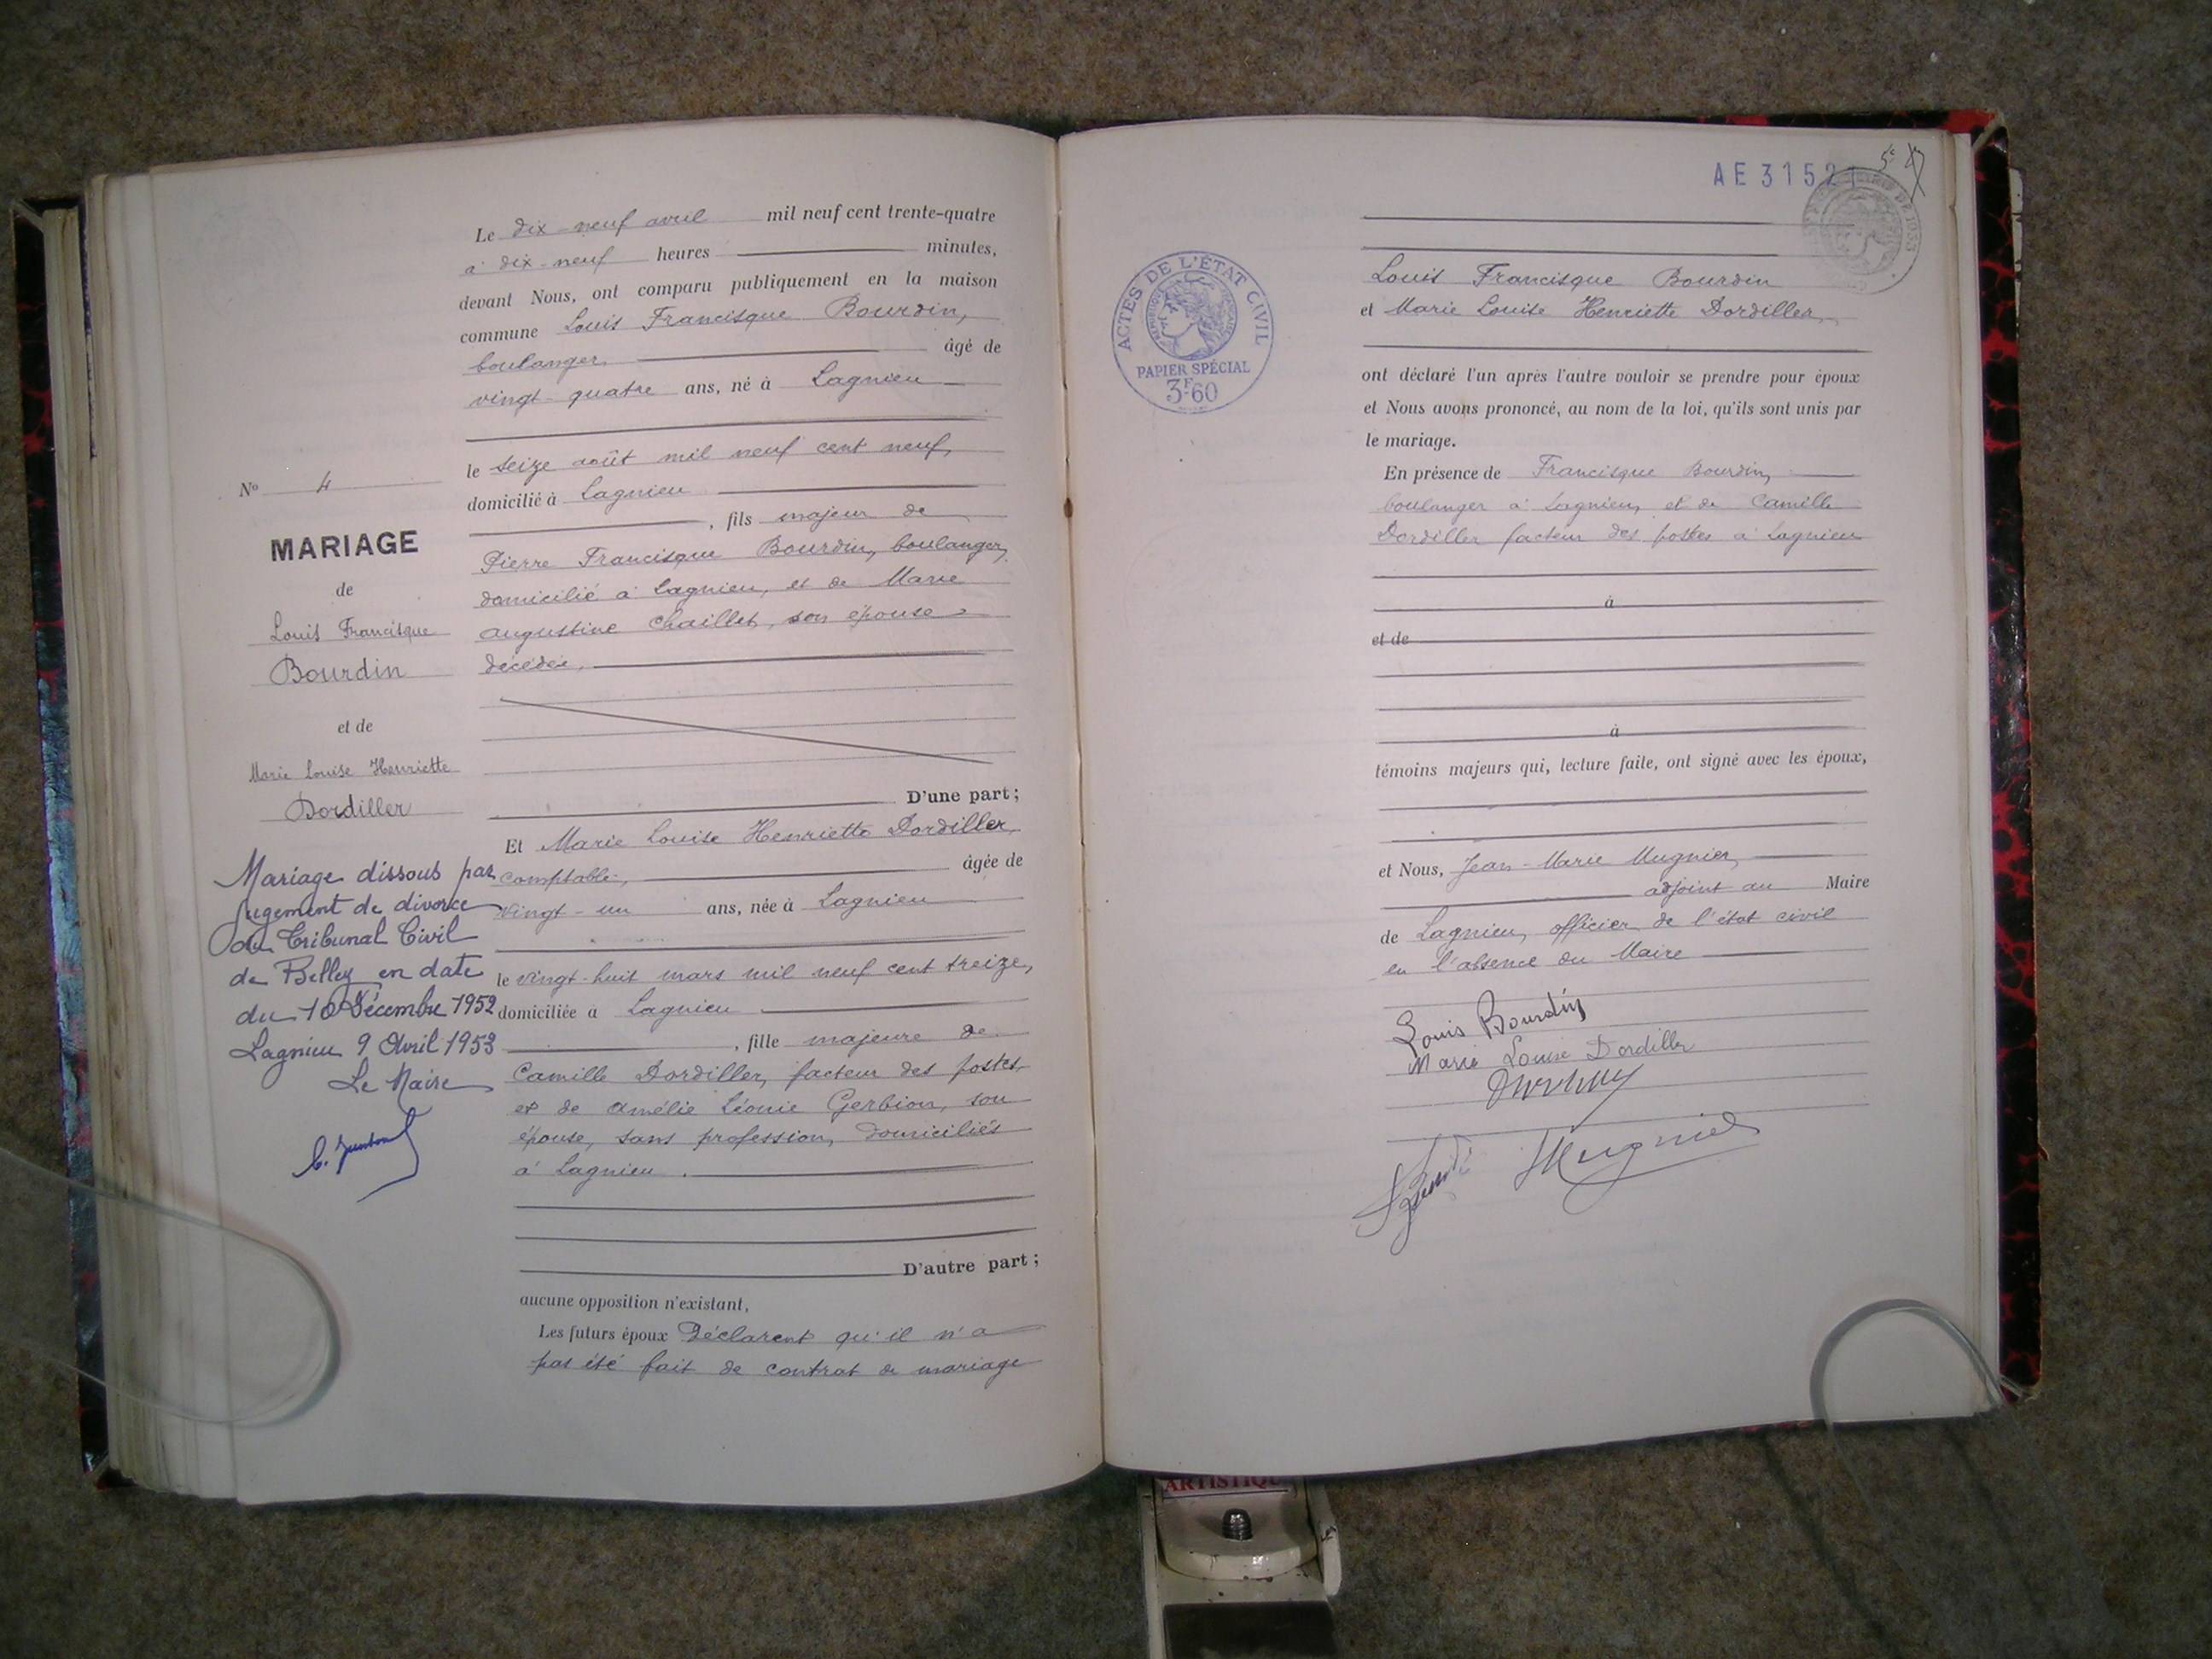 Le dix-neuf avril mil neuf cent trente-quatre
à dix-neuf heures minutes,
devant Nous, ont comparu publiquement en la maison
commune Louis Francisque Bourdin,
boulanger, âgé de
vingt-quatre ans, né à Lagnieu
le seize août mil neuf cent neuf,
domicilié à Lagnieu
, fils majeur de
Pierre Francisque Bourdin, boulanger,
domicilié à Lagnieu, et de Marie
Augustine Chaillet, son épouse
décédée,
D'une part ;
Et Marie Louise Henriette Dordiller,
comptable, âgée de
vingt-un ans, née à Lagnieu
le vingt-huit mars mil neuf cent treize,
domiciliée à Lagnieu
, fille majeure de
Camille Dordiller, facteur des postes,
et de Amélie Léonie Gerbion, son
épouse, sans profession, domiciliés
à Lagnieu.
D'autre part ;
aucune opposition n'existant,
Les futurs époux déclarent qu'il n'a
pas été fait de contrat de mariage
No 4
MARIAGE
de
Louis Francisque
Bourdin
et de
Marie Louise Henriette
Dordiller
Mariage dissous par
jugement de divorce
du Tribunal Civil
de Belley en date
du 10 Décembre 1952
Lagnieu 9 Avril 1953
Le Maire
AE 31521
ACTES DE L'ÉTAT CIVIL
PAPIER SPÉCIAL
3F60
Louis Francisque Bourdin
et Marie Louise Henriette Dordiller,
ont déclaré l'un après l'autre vouloir se prendre pour époux
et Nous avons prononcé, au nom de la loi, qu'ils sont unis par
le mariage.
En présence de Francisque Bourdin,
boulanger à Lagnieu, et de Camille
Dordiller facteur des postes à Lagnieu
à
et de
à
témoins majeurs qui, lecture faite, ont signé avec les époux,
et Nous, Jean-Marie Mugnier,
adjoint au Maire
de Lagnieu, officier de l'état civil
en l'absence du Maire
Louis Bourdin
Marie Louise Dordiller
Mugnier
ARTISTIQUE